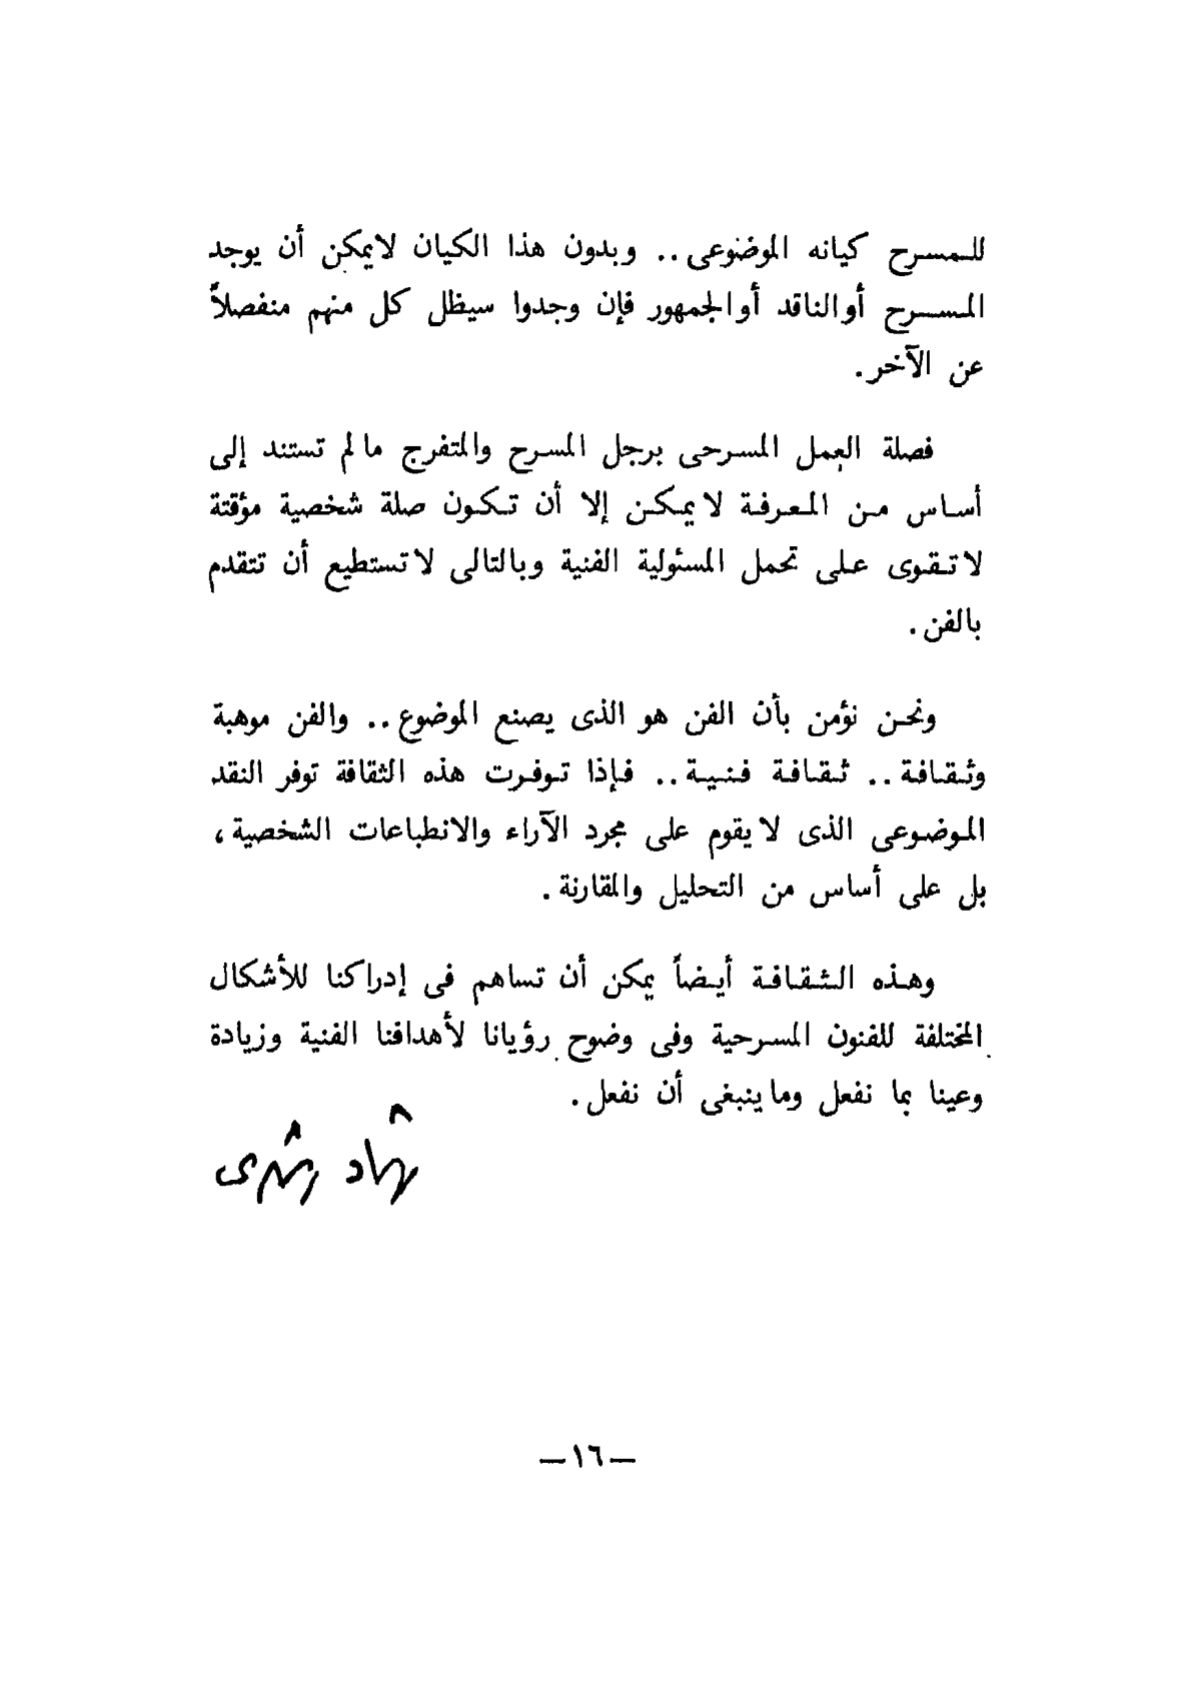 للمسرح كيانه الموضوعى .. وبدون هذا الكيان لايمكن أن يوجد
المسرح أوالناقد أوالجمهور فإن وجدوا سيظل كل منهم منفصلاً
عن الآخر .
فصلة العمل المسرحى برجل المسرح والمتفرج مالم تستند إلى
أساس من المعرفة لايمكن إلا أن تكون صلة شخصية مؤقتة
لاتقوى على تحمل المسئولية الفنية وبالتالى لاتستطيع أن تتقدم
بالفن .
ونحن نؤمن بأن الفن هو الذى يصنع الموضوع .. والفن موهبة
وثقافة .. ثقافة فنية .. فإذا توفرت هذه الثقافة توفر النقد
الموضوعى الذى لايقوم على مجرد الآراء والانطباعات الشخصية ،
بل على أساس من التحليل والمقارنة .
وهذه الثقافة أيضاً يمكن أن تساهم فى إدراكنا للأشكال
المختلفة للفنون المسرحية وفى وضوح رؤيانا لأهدافنا الفنية وزيادة
وعينا بما نفعل وماينبغى أن نفعل .
رشاد رشدى
— ١٦ —